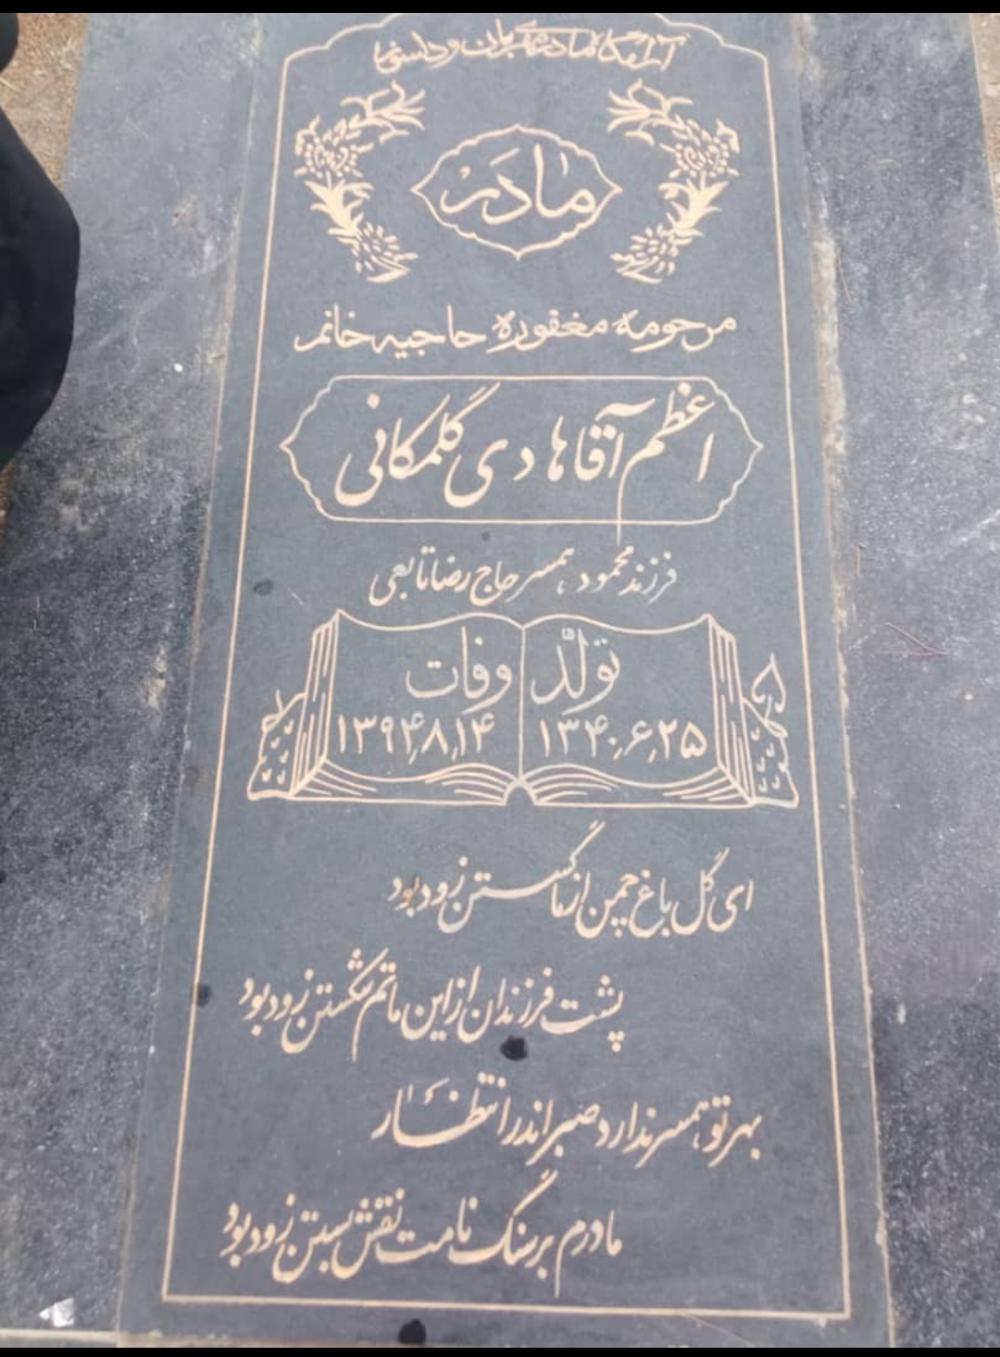 آرامگاه مادری مهربان و دلسوز
مادر
مرحومه مغفوره حاجیه خانم
اعظم آقاهادی گلمکانی
فرزند محمود، همسر حاج رضا تابعی
تولد وفات
۱۳۴۰٫۶٫۲۵ ۱۳۹۴٫۸٫۱۴
ای گل باغ چمن از ما گسستن زود بود
پشت فرزندان از این ماتم شکستن زود بود
بهر تو همسر ندارد صبر اندر انتظار
مادرم بر سنگ نامت نقش بستن زود بود